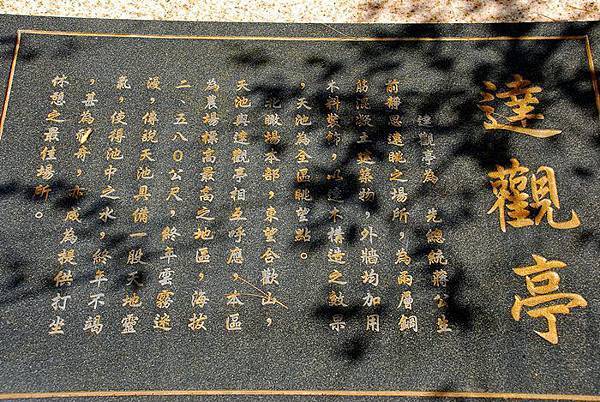 達觀亭
達觀亭為　先總統蔣公生
前靜思遠眺之場所，為兩層鋼
筋混凝土建築物，外牆均加用
木料裝飾，以達木構造之效果
，天池為全區眺望點。
北瞰場本部，東望合歡山，
天池與達觀亭相互呼應，本區
為農場標高最高之地區，海拔
二、五八０公尺，終年雲霧迷
漫，傳說天池具備一股天地靈
氣，使得池中之水，終年不竭
，甚為稀奇，亦成為提供打坐
休憩之最佳場所。